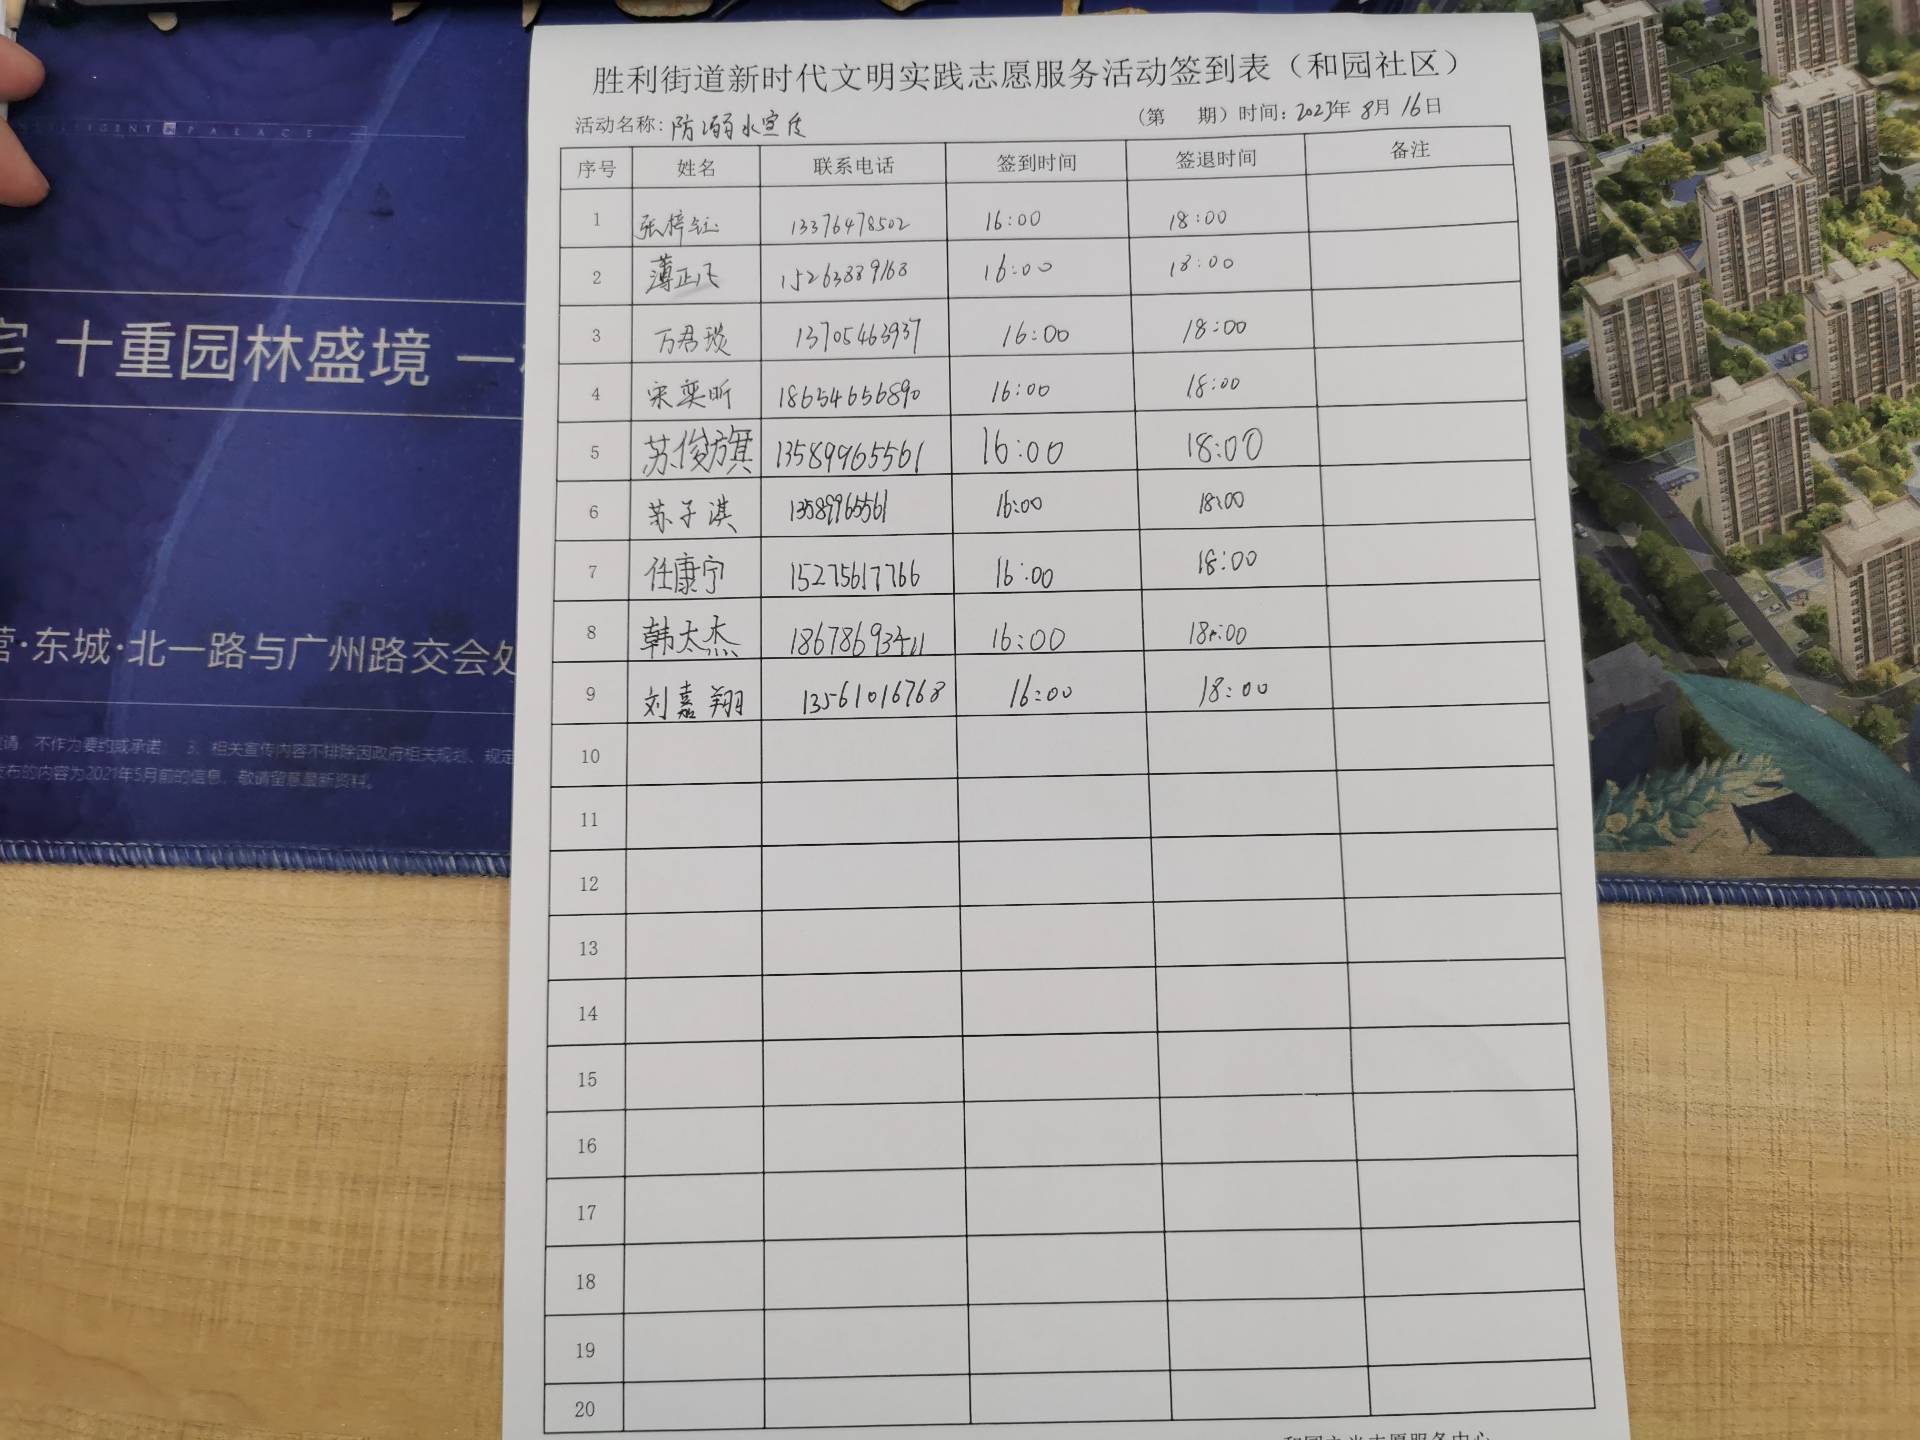 胜利街道新时代文明实践志愿服务活动签到表（和园社区）
活动名称：防溺水宣传 （第 期）时间：2023年 8月 16日
序号 姓名 联系电话 签到时间 签退时间 备注
1 张梓钰 13376478502 16:00 18:00
2 薄正飞 15263889168 16:00 18:00
3 万君琰 13705463937 16:00 18:00
4 宋奕昕 18654656890 16:00 18:00
5 苏俊旗 13589965561 16:00 18:00
6 苏子淇 13589965561 16:00 18:00
7 任康宁 15275617766 16:00 18:00
8 韩太杰 18678693411 16:00 18:00
9 刘嘉翔 13561016768 16:00 18:00
10
11
12
13
14
15
16
17
18
19
20
PALACE
宅 十重园林盛境 一
营·东城·北一路与广州路交会处
请，不作为要约或承诺； 3、相关宣传内容不排除因政府相关规划、规定
发布的内容为2021年5月前的信息，敬请留意最新资料。